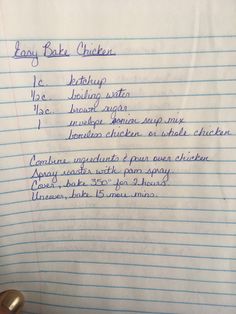 Easy Bake Chicken
1 c. ketchup
1/2 c. boiling water
1/2 c. brown sugar
1 envelope onion soup mix
boneless chicken or whole chicken
Combine ingredients & pour over chicken
Spray roaster with pam spray.
Cover, bake 350° for 2 hours.
Uncover, bake 15 more mins.